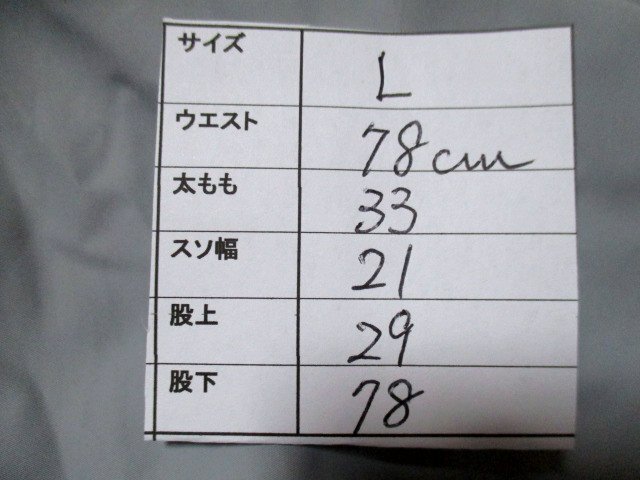 サイズ L
ウエスト 78cm
太もも 33
スソ幅 21
股上 29
股下 78